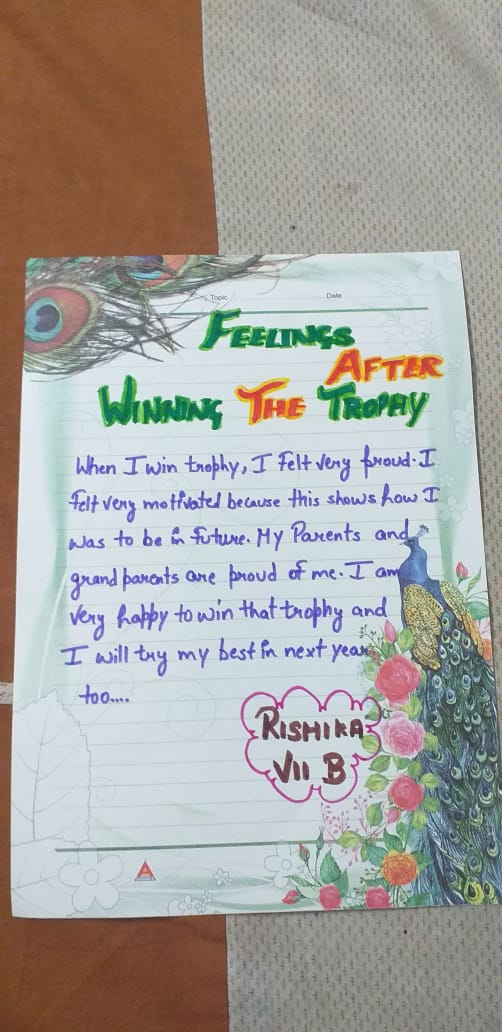 Topic
Date
FEELINGS
AFTER
WINNING THE TROPHY
When I win trophy, I Felt very proud. I
felt very motivated because this shows how I
was to be in future. My Parents and
grand parents are proud of me. I am
very happy to win that trophy and
I will try my best in next year
too....
RISHIKA
VII B